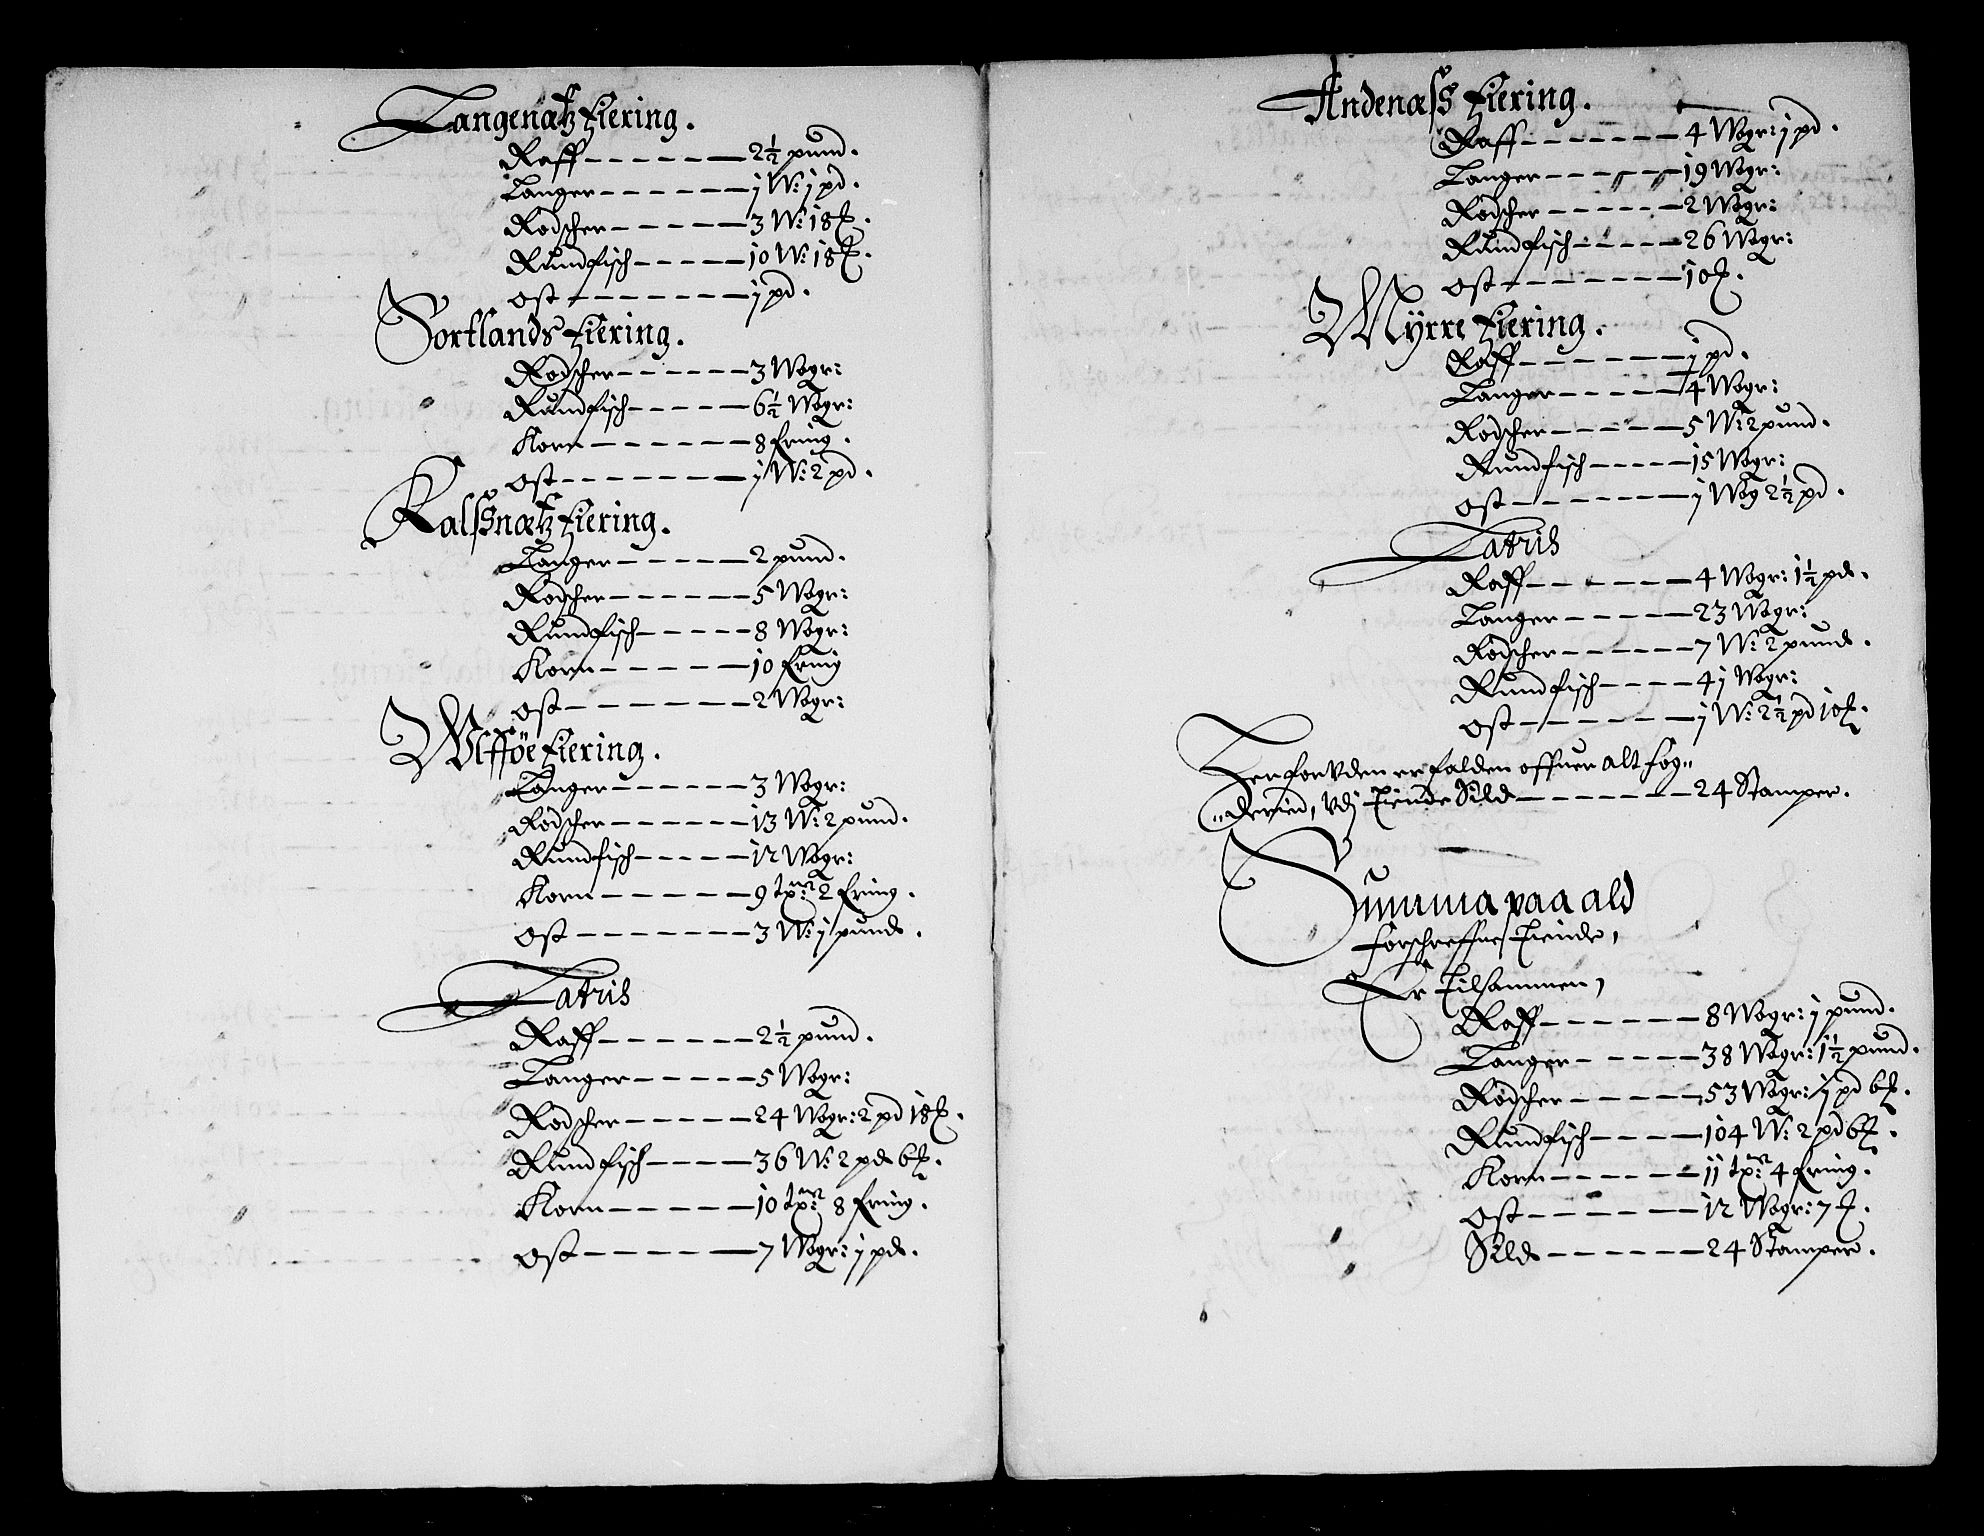 Langenætz fiering.
Raff — 2½ pund.
Langer — j W: j pd.
Rodscher — 3 W: 18 ℔.
Rundfisch — 10 W: 18 ℔.
Ost — j pd.
Sortlands fiering.
Rodscher — 3 Wogr:
Rundfisch — 6½ Wogr:
Korn — 8 Ering.
Ost — j W: 2 pd.
Kalssnætz fiering.
Langer — 2 pund.
Rodscher — 5 Wogr:
Rundfisch — 8 Wogr:
Korn — 10 Ering
Ost — 2 Wogr:
Ulfføe fiering.
Langer — 3 Wogr:
Rodscher — 13 W: 2 pund.
Rundfisch — 12 Wogr:
Korn — 9 tønr 2 Ering.
Ost — 3 W: j pund.
Lateris
Raff — 2½ pund.
Langer — 5 Wogr:
Rodscher — 24 Wogr: 2 pd 18 ℔.
Rundfisch — 36 W: 2 pd 6 ℔.
Korn — 10 tønr 8 Ering.
Ost — 7 Wogr: j pd.
Andenæss fiering.
Raff — 4 Wogr: j pd.
Langer — 19 Wogr:
Rodscher — 2 Wogr:
Rundfisch — 26 Wogr:
Ost — 10 ℔.
Myrre fiering.
Raff — j pd.
Langer — 4 Wogr:
Rodscher — 5 W: 2 pund.
Rundfisch — 15 Wogr:
Ost — j Wog 2½ pd.
Lateris
Raff — 4 Wogr: 1½ pd.
Langer — 23 Wogr:
Rodscher — 7 W: 2 pund.
Rundfisch — 4j Wogr:
Ost — j W: 2½ pd 10 ℔.
Herforuden er falden offuer alt fog„
„deried, udj Tiende Sild — 24 Stamper.
Summa paa ald
forschreffne Tiende,
Er Tilsammen,
Raff — 8 Wogr: j pund.
Langer — 38 Wogr: 1½ pund.
Rodscher — 53 Wogr: j pd 6 ℔.
Rundfisch — 104 W: 2 pd 6 ℔.
Korn — jj tønr 4 Ering.
Ost — 12 Wogr: 7 ℔.
Sild — 24 Stamper.